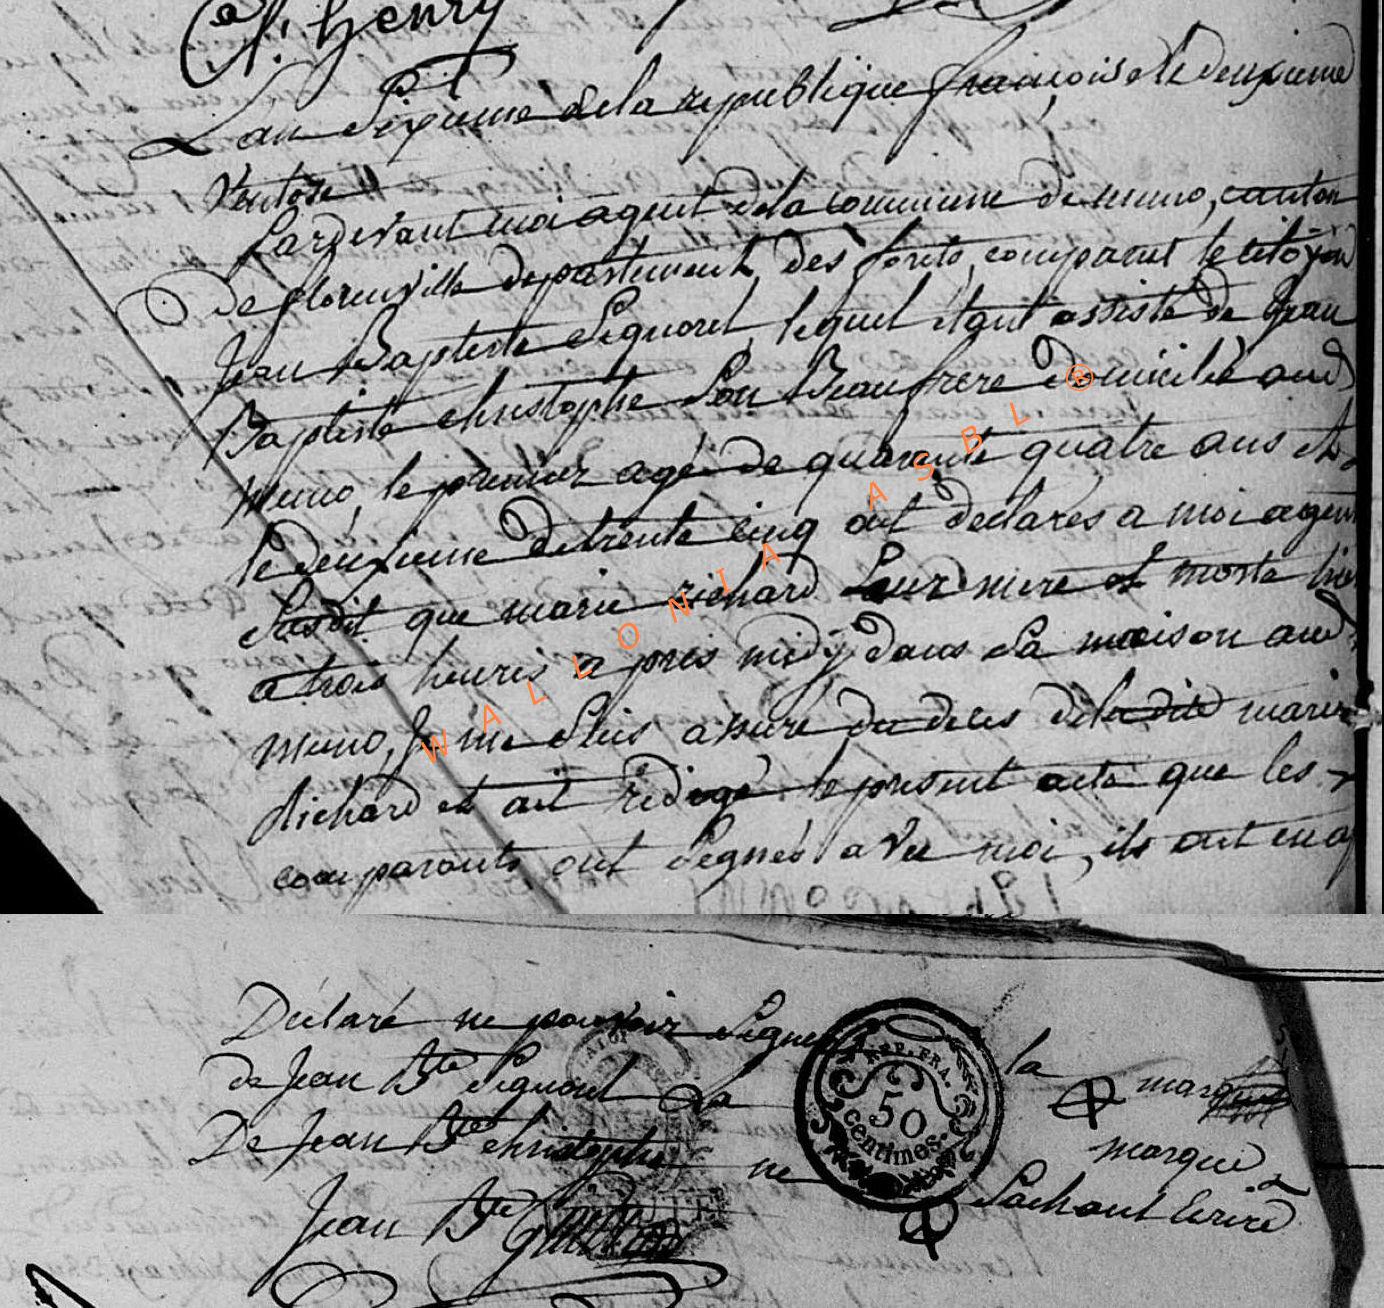 Ct. henry
L'an Sixieme de la republique françois le deuxieme
Ventose
Pardevant moi agent de la commune de muno, canton
De florenville departement des forets, comparut le citoyen
Jean Baptiste Pignoret lequel etant assisté de Jean
Baptiste christophe Son Beaufrere Domicilié aud
muno, le premier agé de quarente quatre ans et
le deuxieme de trente cinq ont declarés a moi agent
Susdit que marie richard Leur mere est morte hier
a trois heures a pres midÿ dans Sa maison aud
muno, Je me Suis assuré du deces de la dite marie
Richard et ait redigé le present acte que les
comparants ont Segnés avec moi, ils ont
Declaré ne pouvoir Segner la
de Jean Bte Pignoret marque
La marque
De Jean Bte christophe ne Sachant Ecrire
REP. FRA.
50
centimes.
Jean Bte
WALLONIA ASBL ®